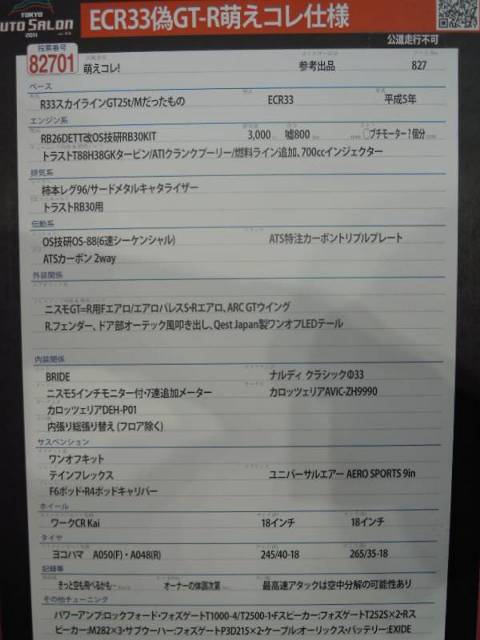 TOKYO
AUTO SALON
2011
ECR33偽GT-R萌えコレ仕様
公道走行不可
投票番号
82701
萌えコレ!
参考出品
827
ベース
R33スカイラインGT25t/Mだったもの
ECR33
平成5年
エンジン系
RB26DETT改OS技研RB30KIT
3,000
嘘800
プチモーター1個分
トラストT88H38GKタービン/ATIクランクプーリー/燃料ライン追加、700ccインジェクター
排気系
柿本レグ96/サードメタルキャタライザー
トラストRB30用
伝動系
OS技研OS-88(6速シーケンシャル)
ATS特注カーボントリプルプレート
ATSカーボン 2way
外装関係
ニスモGT=R用Fエアロ/エアロパレスS・Rエアロ、ARC GTウイング
R.フェンダー、ドア部オーテック風叩き出し、Qest Japan製ワンオフLEDテール
内装関係
BRIDE
ナルディ クラシックΦ33
ニスモ5インチモニター付・7連追加メーター
カロッツェリアAVIC-ZH9990
カロッツェリアDEH-P01
内張り総張り替え (フロア除く)
サスペンション
ワンオフキット
テインフレックス
ユニバーサルエアー AERO SPORTS 9in
F6ポッド・R4ポッドキャリパー
ホイール
ワークCR Kai
18インチ
18インチ
タイヤ
ヨコハマ A050(F)・A048(R)
245/40-18
265/35-18
記録等
きっと空も飛べるかも…
オーナーの体調次第
最高速アタックは空中分解の可能性あり
その他チューニング
パワーアンプ:ロックフォード・フォズゲートT1000-4/T2500-1・Fスピーカー:フォズゲートT252S×2・Rス
ピーカー:M282×3・サブウーハー:フォズゲートP3D215×2・ケーブル:オーディソックス・バッテリー:EXIDE